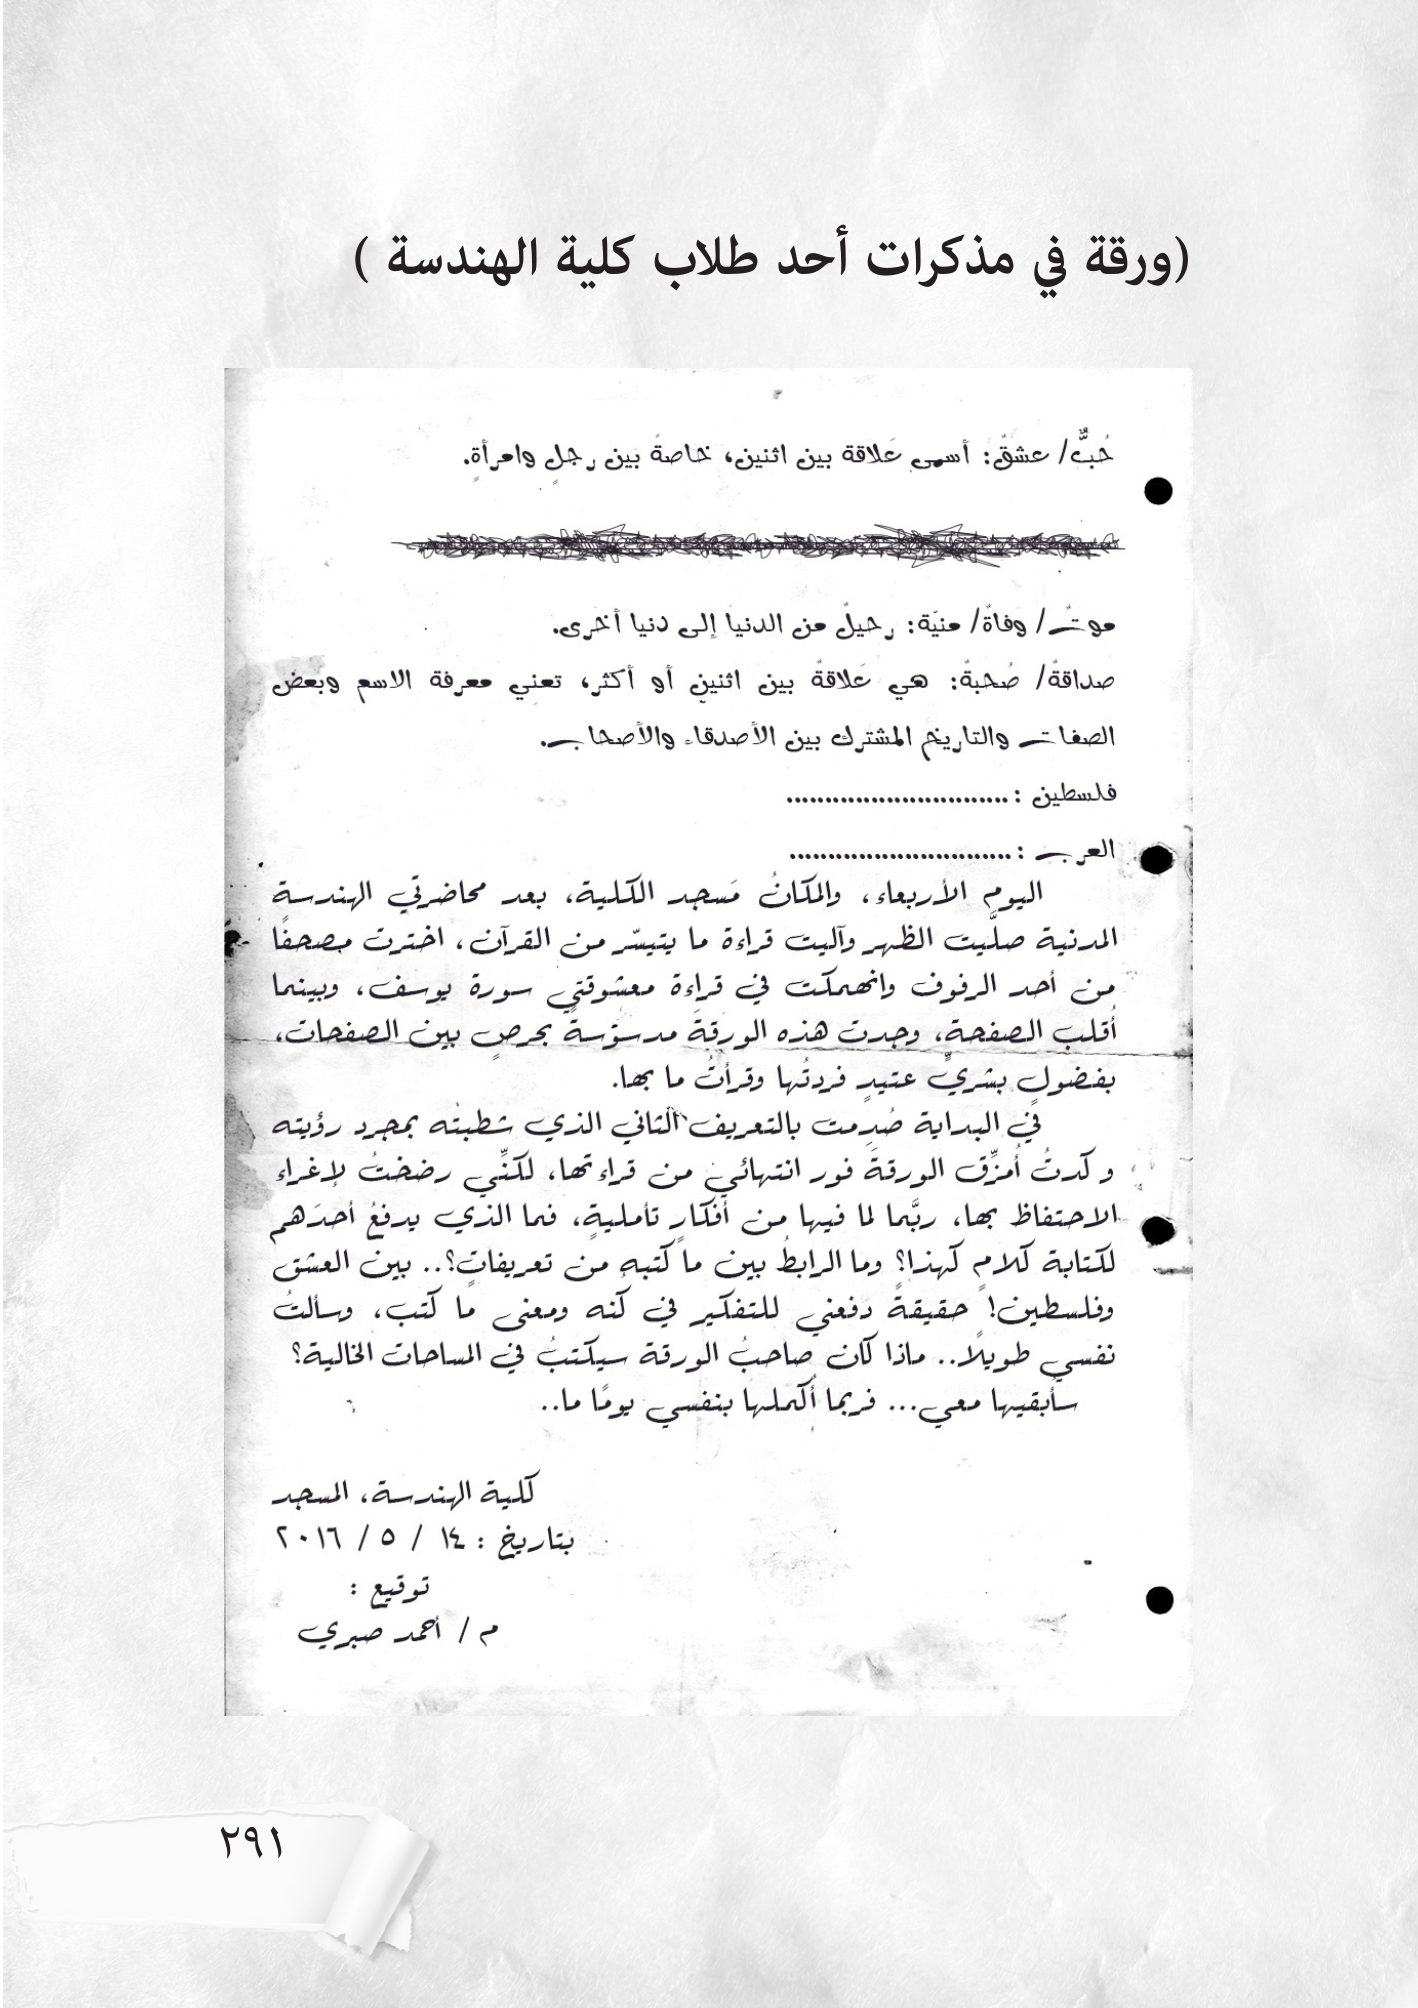 (ورقة في مذكرات أحد طلاب كلية الهندسة )
حُبٌّ/ عشقٌ: أسمى عَلاقة بين اثنين، خاصةً بين رجلٍ وامرأةٍ.
موتٌ/ وفاةٌ/ منيّة: رحيلٌ من الدنيا إلى دنيا أخرى.
صداقةٌ/ صُحبةٌ: هي عَلاقةٌ بين اثنينِ أو أكثر، تعني معرفة الاسم وبعض
الصفات والتاريخ المشترك بين الأصدقاء والأصحاب.
فلسطين : .............................
العرب : .............................
اليوم الأربعاء، والمكانُ مَسجد الكلية، بعد محاضرتي الهندسة
المدنية صلَّيت الظهر وآليت قراءة ما يتيسّر من القرآن، اخترت مصحفًا
من أحد الرفوف وانهمكت في قراءة معشوقتي سورة يوسف، وبينما
أقلب الصفحة، وجدت هذه الورقةَ مدسوسةً بحرصٍ بين الصفحات،
بفضولٍ بشريٍّ عتيدٍ فردتُها وقرأتُ ما بها.
في البداية صُدِمت بالتعريف الثاني الذي شطبتُه بمجرد رؤيته
وكدتُ أُمزِّق الورقةَ فور انتهائي من قراءتها، لكنِّي رضختُ لإغراء
الاحتفاظ بها، ربَّما لما فيها من أفكارٍ تأمليةٍ، فما الذي يدفعُ أحدَهم
لكتابة كلامٍ كهذا؟ وما الرابطُ بين ما كتبه من تعريفاتٍ؟.. بين العشق
وفلسطين! حقيقةً دفعني للتفكير في كنه ومعنى ما كتب، وسألتُ
نفسي طويلًا.. ماذا كان صاحبُ الورقة سيكتبُ في المساحات الخالية؟
سأبقيها معي... فربما أُكملها بنفسي يومًا ما..
كلية الهندسة، المسجد
بتاريخ : ١٤ / ٥ / ٢٠١٦
توقيع :
م / أحمد صبري
٢٩١